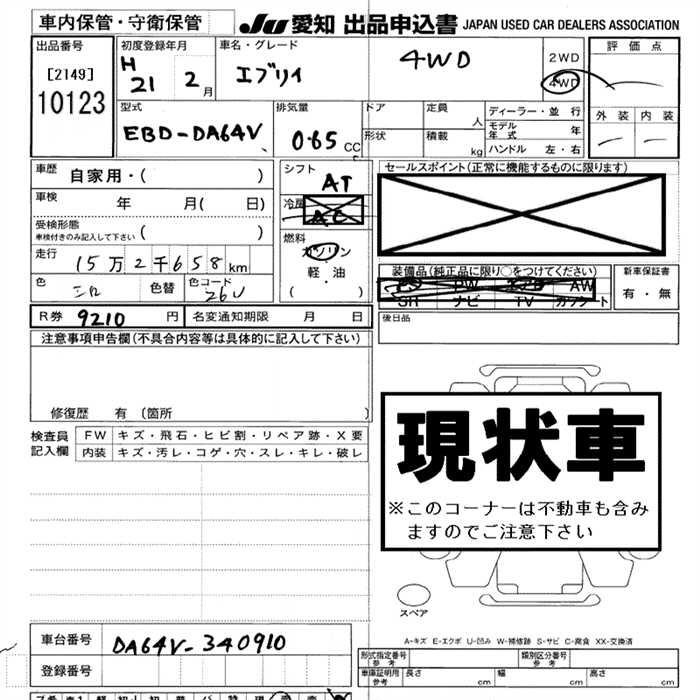 車内保管・守衛保管
JU 愛知 出品申込書 JAPAN USED CAR DEALERS ASSOCIATION
出品番号
[2149]
10123
初度登録年月
H 21 2月
車名・グレード
エブリイ
4WD
2WD
4WD
評価点
外装 内装
型式
EBD-DA64V
排気量
0.65 CC
ドア
形状
定員 人
積載 kg
ディーラー・並行
モデル年式 年
ハンドル 左・右
車歴 自家用・( )
車検 年 月( 日)
受検形態
車検付きのみ記入して下さい ( )
走行 15万2千658km
色
色替
色コード 26U
シフト AT
冷房 AC
燃料
ガソリン
軽・油
( )
セールスポイント(正常に機能するものに限ります)
装備品(純正品に限り○をつけてください)
PS PW エアB AW
SR ナビ TV カワシート
新車保証書
有・無
R券 9210 円 名変通知期限 月 日
後日品
注意事項申告欄(不具合内容等は具体的に記入して下さい)
修復歴 有 (箇所 )
検査員記入欄
FW キズ・飛石・ヒビ割・リペア跡・X要
内装 キズ・汚レ・コゲ・穴・スレ・キレ・破レ
現状車
※このコーナーは不動車も含み
ますのでご注意下さい
スペア
A-キズ E-エクボ U-凹み W-補修跡 S-サビ C-腐食 XX-交換済
車台番号 DA64V-340910
登録番号
形式指定番号 参考
類別区分番号 参考
車庫証明用 参考 長さ cm 幅 cm 高さ cm